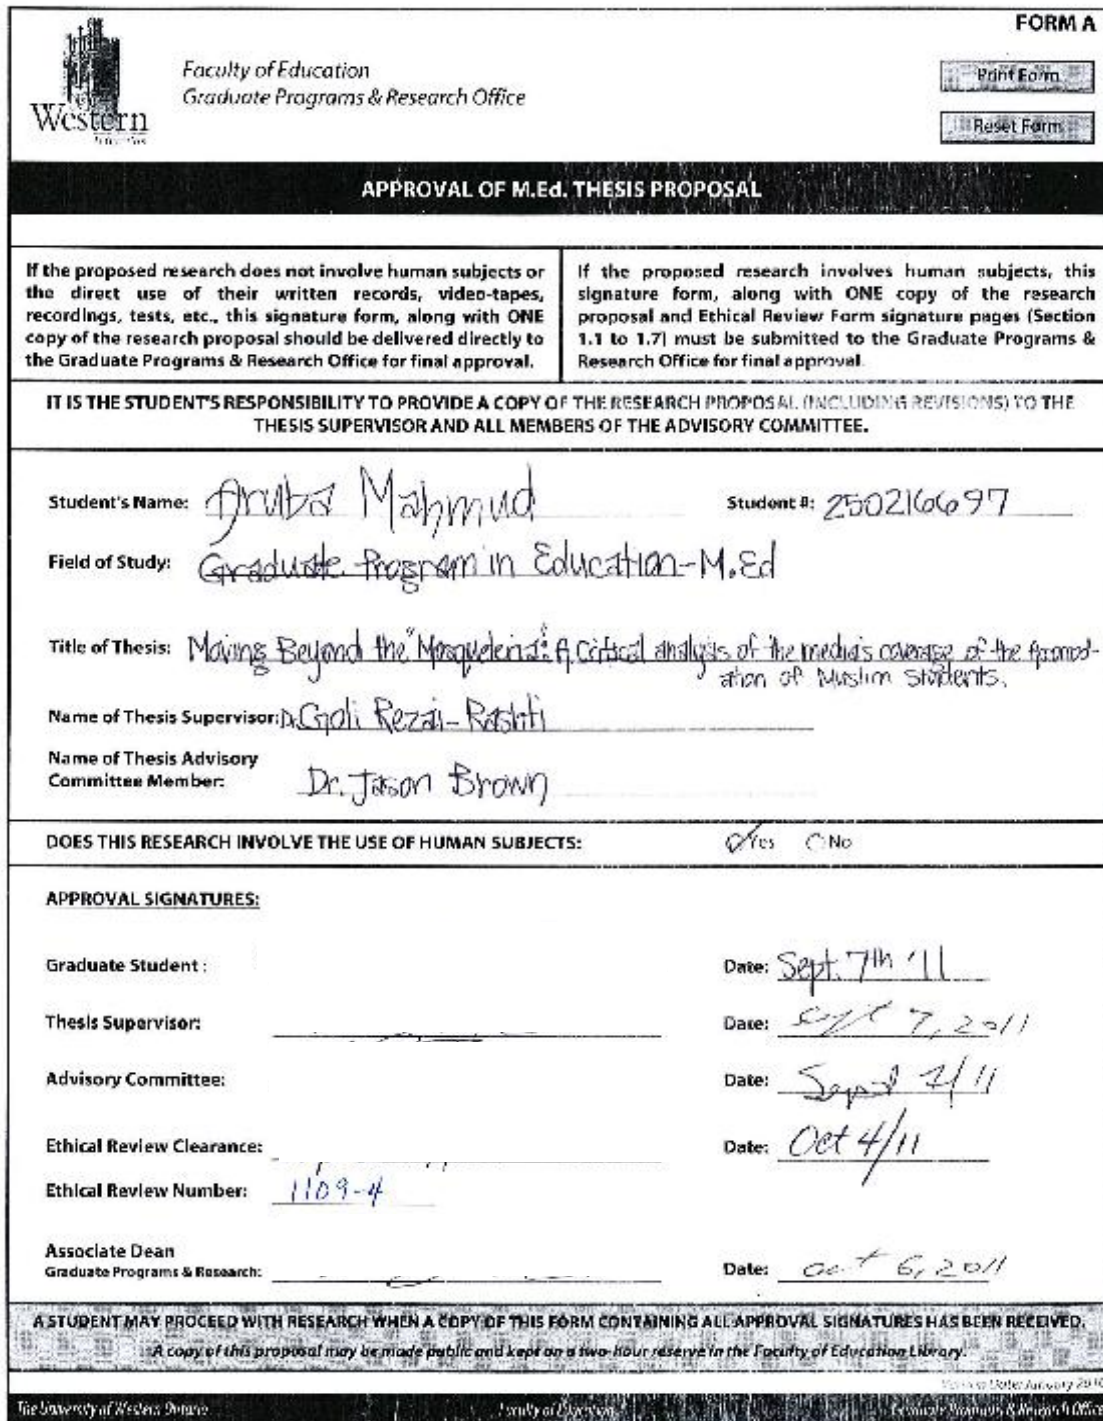 FORM A
Western
Faculty of Education
Graduate Programs & Research Office
Print Form
Reset Form
APPROVAL OF M.Ed. THESIS PROPOSAL
If the proposed research does not involve human subjects or
the direct use of their written records, video-tapes,
recordings, tests, etc., this signature form, along with ONE
copy of the research proposal should be delivered directly to
the Graduate Programs & Research Office for final approval.
If the proposed research involves human subjects, this
signature form, along with ONE copy of the research
proposal and Ethical Review Form signature pages (Section
1.1 to 1.7) must be submitted to the Graduate Programs &
Research Office for final approval.
IT IS THE STUDENT'S RESPONSIBILITY TO PROVIDE A COPY OF THE RESEARCH PROPOSAL (INCLUDING REVISIONS) TO THE
THESIS SUPERVISOR AND ALL MEMBERS OF THE ADVISORY COMMITTEE.
Student's Name: Aruba Mahmud Student #: 250216697
Field of Study: Graduate Program in Education-M.Ed
Title of Thesis: Moving Beyond the "Mosqueteria": A Critical analysis of the media's coverage of the
ation of Muslim Students.
Name of Thesis Supervisor: Dr. Goli Rezai-Rashti
Name of Thesis Advisory
Committee Member: Dr. Jason Brown
DOES THIS RESEARCH INVOLVE THE USE OF HUMAN SUBJECTS: Yes No
APPROVAL SIGNATURES:
Graduate Student : Date: Sept. 7th '11
Thesis Supervisor: Date: Sept 7, 2011
Advisory Committee: Date: /11
Ethical Review Clearance: Date: Oct 4/11
Ethical Review Number: 1109-4
Associate Dean
Graduate Programs & Research: Date: Oct 6, 2011
A STUDENT MAY PROCEED WITH RESEARCH WHEN A COPY OF THIS FORM CONTAINING ALL APPROVAL SIGNATURES HAS BEEN RECEIVED.
A copy of this proposal may be made public and kept on a two-hour reserve in the Faculty of Education Library.
Version Date: January 2010
The University of Western Ontario Faculty of Education Graduate Programs & Research Office